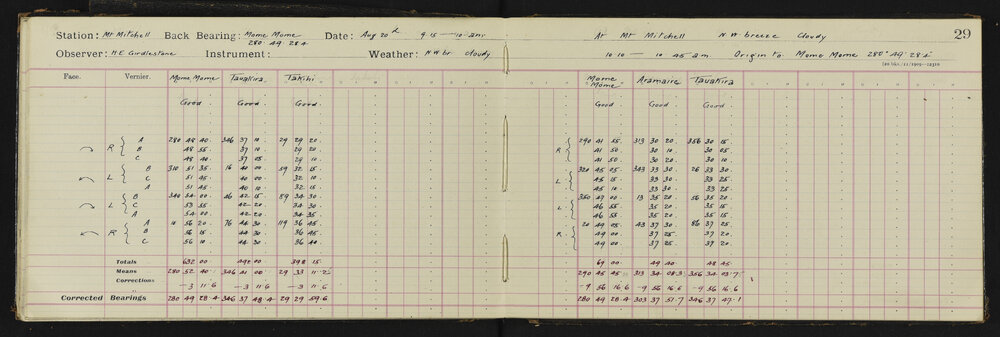 Station: Mt Mitchell Back Bearing: Mome Mome Date: Aug 20th 9 15 — 10 am
280· 49· 28·4
Observer: H E Girdlestone Instrument: Weather: N W br cloudy
Pace. Vernier. Mome Mome Tauakira Takihi
Good Good Good
R { A 280 48 40 346 37 10 29 29 20
B 48 55 37 10 29 20
C 48 40 37 05 29 10
L { B 310 51 35 16 40 00 59 32 15
C 51 45 40 00 32 10
A 51 45 40 10 32 15
L { B 340 54 00 46 42 15 89 34 30
C 53 55 42 20 34 30
A 54 00 42 20 34 35
R { A 10 56 20 76 44 30 119 36 45
B 56 15 44 30 36 45
C 56 10 44 30 36 40
Totals 632 00 492 00 398 15
Means 280 52 40 346 41 00 29 33 11·2
Corrections —3 11·6 —3 11·6 —3 11·6
Corrected Bearings 280 49 28·4 346 37 48·4 29 29 59·6
At Mt Mitchell N W breeze cloudy 29
10 10 — 10 45 am Origin to Mome Mome 280° 49' 28·4"
Mome Mome Aramaire Tauakira
Good Good Good
R { 290 41 55 313 30 20 356 30 15
41 50 30 10 30 05
41 50 30 20 30 10
L { 320 45 05 343 33 30 26 33 30
45 15 33 30 33 25
45 10 33 30 33 25
L { 350 47 00 13 35 20 56 35 20
46 55 35 20 35 15
46 55 35 20 35 15
R { 20 49 05 43 37 30 86 37 25
49 00 37 25 37 20
49 00 37 25 37 20
69 00 49 40 48 45
290 45 45 313 34 08·3 356 34 03·7
—9 56 16·6 —9 56 16·6 —9 56 16·6
280 49 28·4 303 37 51·7 346 37 47·1